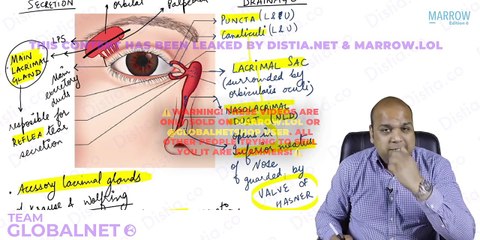 SECRETION
orbital
DRAINAGE
PUNCTA (L&U)
Canaliculi (L&U)
MARROW
Edition 6
THIS CONTENT HAS BEEN LEAKED BY DISTIA.NET & MARROW.LOL
LPS
MAIN
LACRIMAL
GLAND
Main
excretory
ducts
LACRIMAL SAC
(surrounded by
orbicularis oculi)
NASOLACRIMAL
(NLD)
WARNING! THESE VIDEOS ARE
SOLD ON MARROW.LOL OR
@GLOBALNETSHOP_USER ALL
OTHER PEOPLE TRYING TO
YOU IT ARE SCAMMERS!
responsible for
REFLEX tear
secretion
of Nose
guarded by
VALVE OF
HASNER
• Accessory lacrimal glands
of Krause & Wolfring
TEAM
GLOBALNET